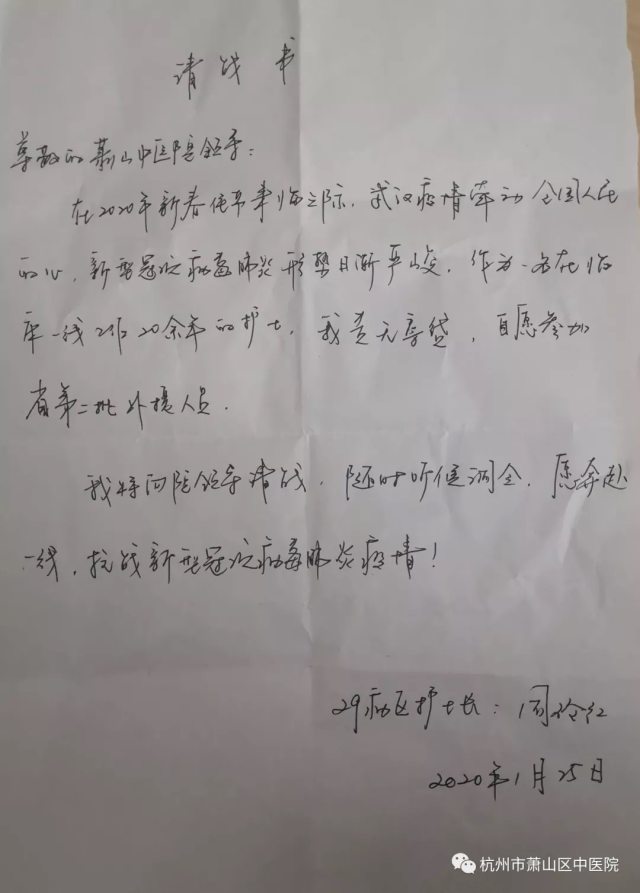 请战书
尊敬的萧山中医院领导:
在2020年新春佳节来临之际,武汉疫情牵动全国人民
的心,新型冠状病毒肺炎形势日渐严峻,作为一名在临
床一线工作20余年的护士,我责无旁贷,自愿参加
省第二批外援人员.
我特向院领导请战,随时听候调令,愿奔赴
一线,抗战新型冠状病毒肺炎疫情!
29病区护士长:周玲红
2020年1月25日
杭州市萧山区中医院